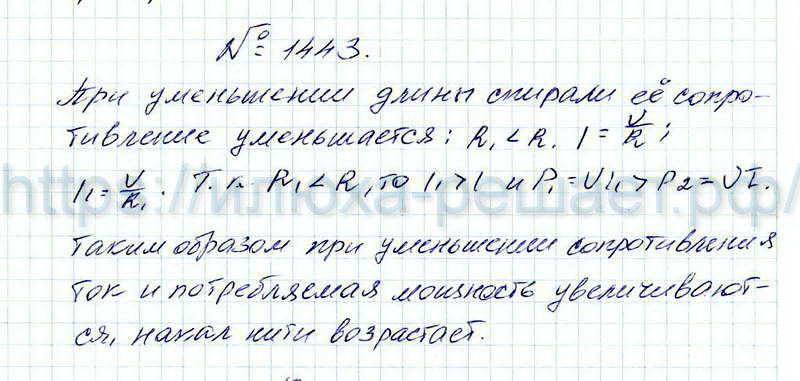 № 1443.
При уменьшении длины спирали её сопро-
тивление уменьшается; R₁ < R. I = U/R;
I₁ = U/R₁. Т.к. R₁ < R, то I₁ > I и P₁ = UI₁ > P2 = UI.
Таким образом при уменьшении сопротивления
ток и потребляемая мощность увеличивают-
ся, накал нити возрастает.
https://илюха-решает.рф/